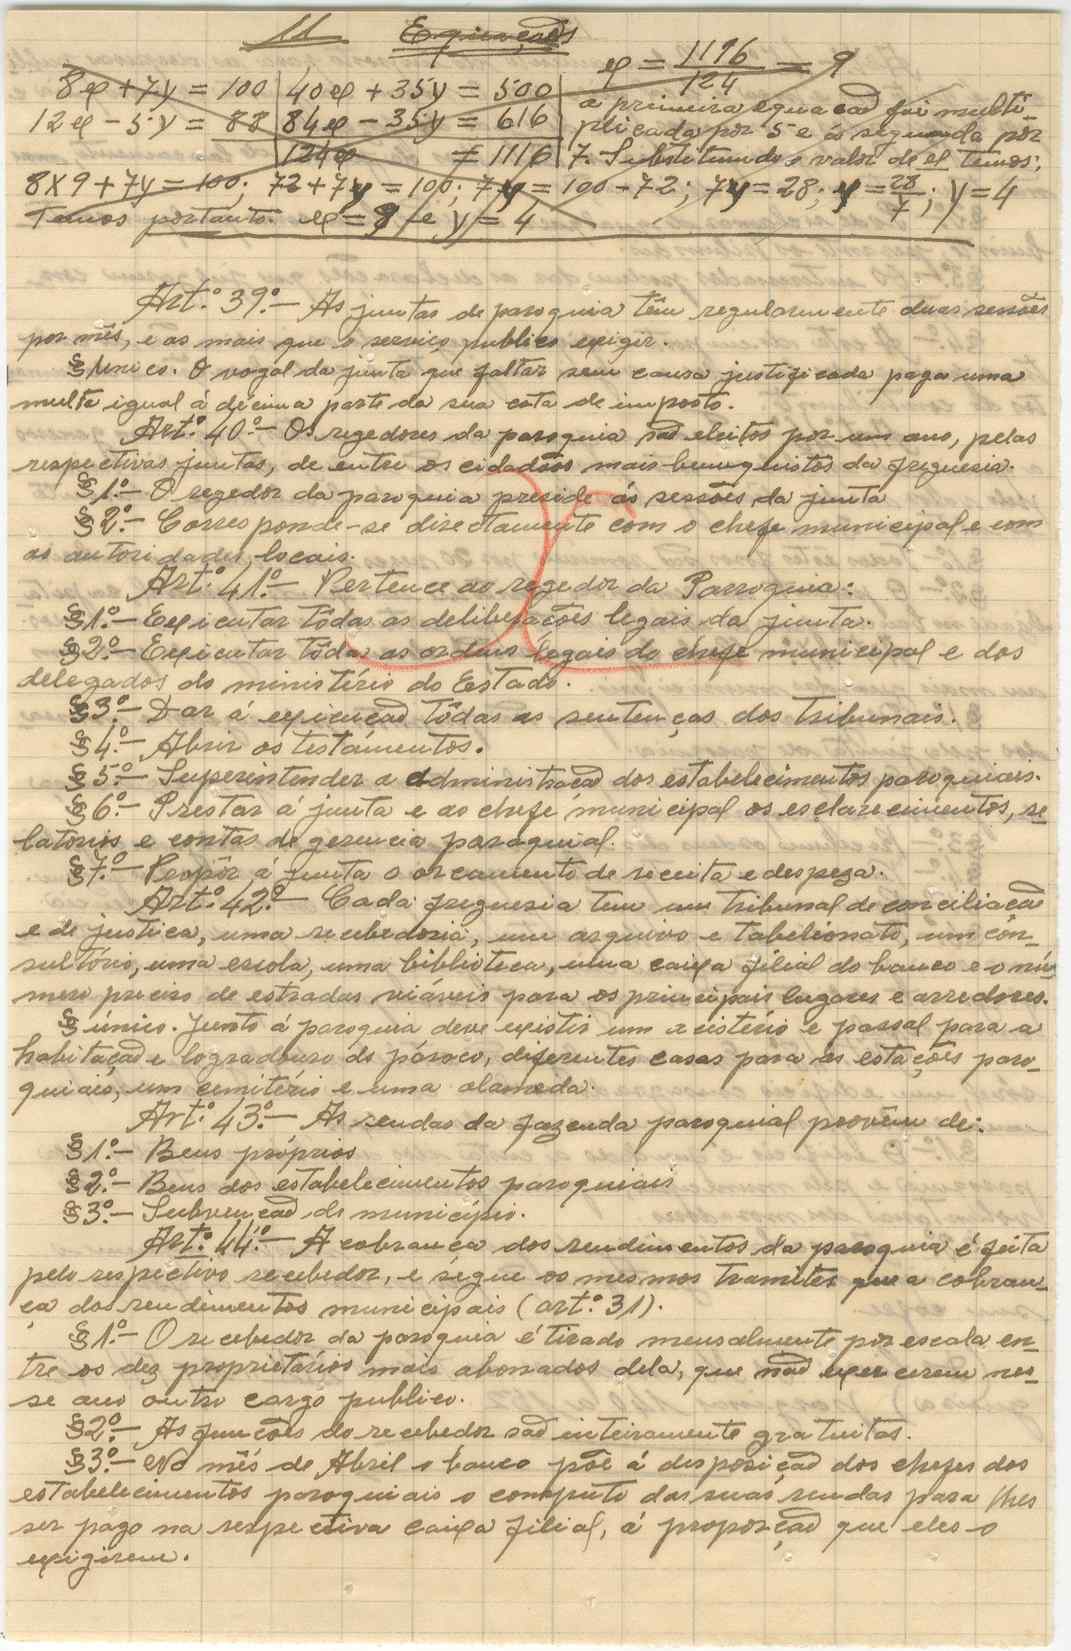 11 Equações
x = 1116/124 = 9
8x + 7y = 100 | 40x + 35y = 500
12x - 5y = 88 | 84x - 35y = 616
124x = 1116
a primeira equação foi multi-
plicada por 5 e a segunda por
7. Substituindo o valor de x temos:
8x9 + 7y = 100; 72 + 7y = 100; 7y = 100 - 72; 7y = 28; y = 28/7; y = 4
Temos portanto: x = 9 e y = 4
Art.º 39º.- As juntas de paroquia têm regularmente duas sessões
por mês, e as mais que o serviço publico exigir.
§ único. O vogal da junta que faltar sem causa justificada paga uma
multa igual á décima parte da sua cota de imposto.
Art.º 40º.- Os regedores da paroquia são eleitos por um ano, pelas
respectivas juntas, de entre os cidadãos mais bemquistos da freguesia.
§1º.- O regedor da paroquia preside ás sessões da junta
§2º.- Corresponde-se directamente com o chefe municipal e com
as autoridades locais.
Art.º 41º.- Pertence ao regedor da Parroquia:
§1º.- Executar tôdas as deliberações legais da junta.
§2º.- Executar tôda as ordens legais do chefe municipal e dos
delegados do ministério do Estado.
§3º.- Dar á execução tôdas as sentenças dos tribunais.
§4º.- Abrir os testamentos.
§5º.- Superintender a administração dos estabelecimentos paroquiais.
§6º.- Prestar á junta e ao chefe municipal os esclarecimentos, re-
latórios e contas de gerencia paroquial.
§7º.- Propôr á junta o orçamento de receita e despeza.
Art.º 42º.- Cada freguesia tem um tribunal de conciliação
e de justiça, uma recebedoria, um arquivo e tabelionato, um con-
sultório, uma escola, uma biblioteca, uma caixa filial do banco e o nú-
mero preciso de estradas viáveis para os principais lugares e arredores.
§ único. Junto á paroquia deve existir um e passal para a
habitação e logradouro do pároco, diferentes casas para as estações paro-
quiais, um cemitério e uma alameda.
Art.º 43º.- As rendas da fazenda paroquial provêm de:
§1º.- Bens próprios
§2º.- Bens dos estabelecimentos paroquiais
§3º.- Subvenção do município.
Art.º 44º.- A cobrança dos rendimentos da paroquia é feita
pelo respectivo recebedor, e segue os mesmos tramites que a cobran-
ça dos rendimentos municipais (art.º 31).
§1º.- O recebedor da paroquia é tirado mensalmente por escala en-
tre os dez proprietários mais abonados dela, que não exercerem nes-
se ano outro cargo publico.
§2º.- As funções do recebedor são inteiramente gratuitas.
§3º.- No mês de Abril o banco põe á disposição dos chefes dos
estabelecimentos paroquiais o computo das suas rendas para lhes
ser pago na respectiva caixa filial, á proporção que eles o
exigirem.